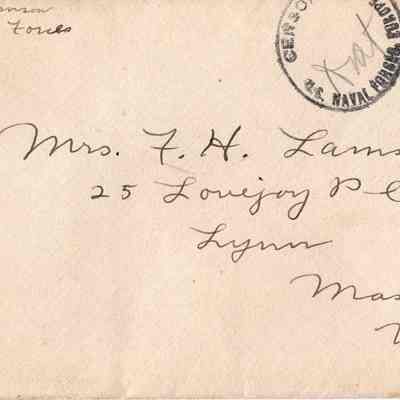 Forces
CENSO
U.S. NAVAL FORCES EUROPE
Mrs. F. H. Lams
25 Lovejoy Pl
Lynn
Mas